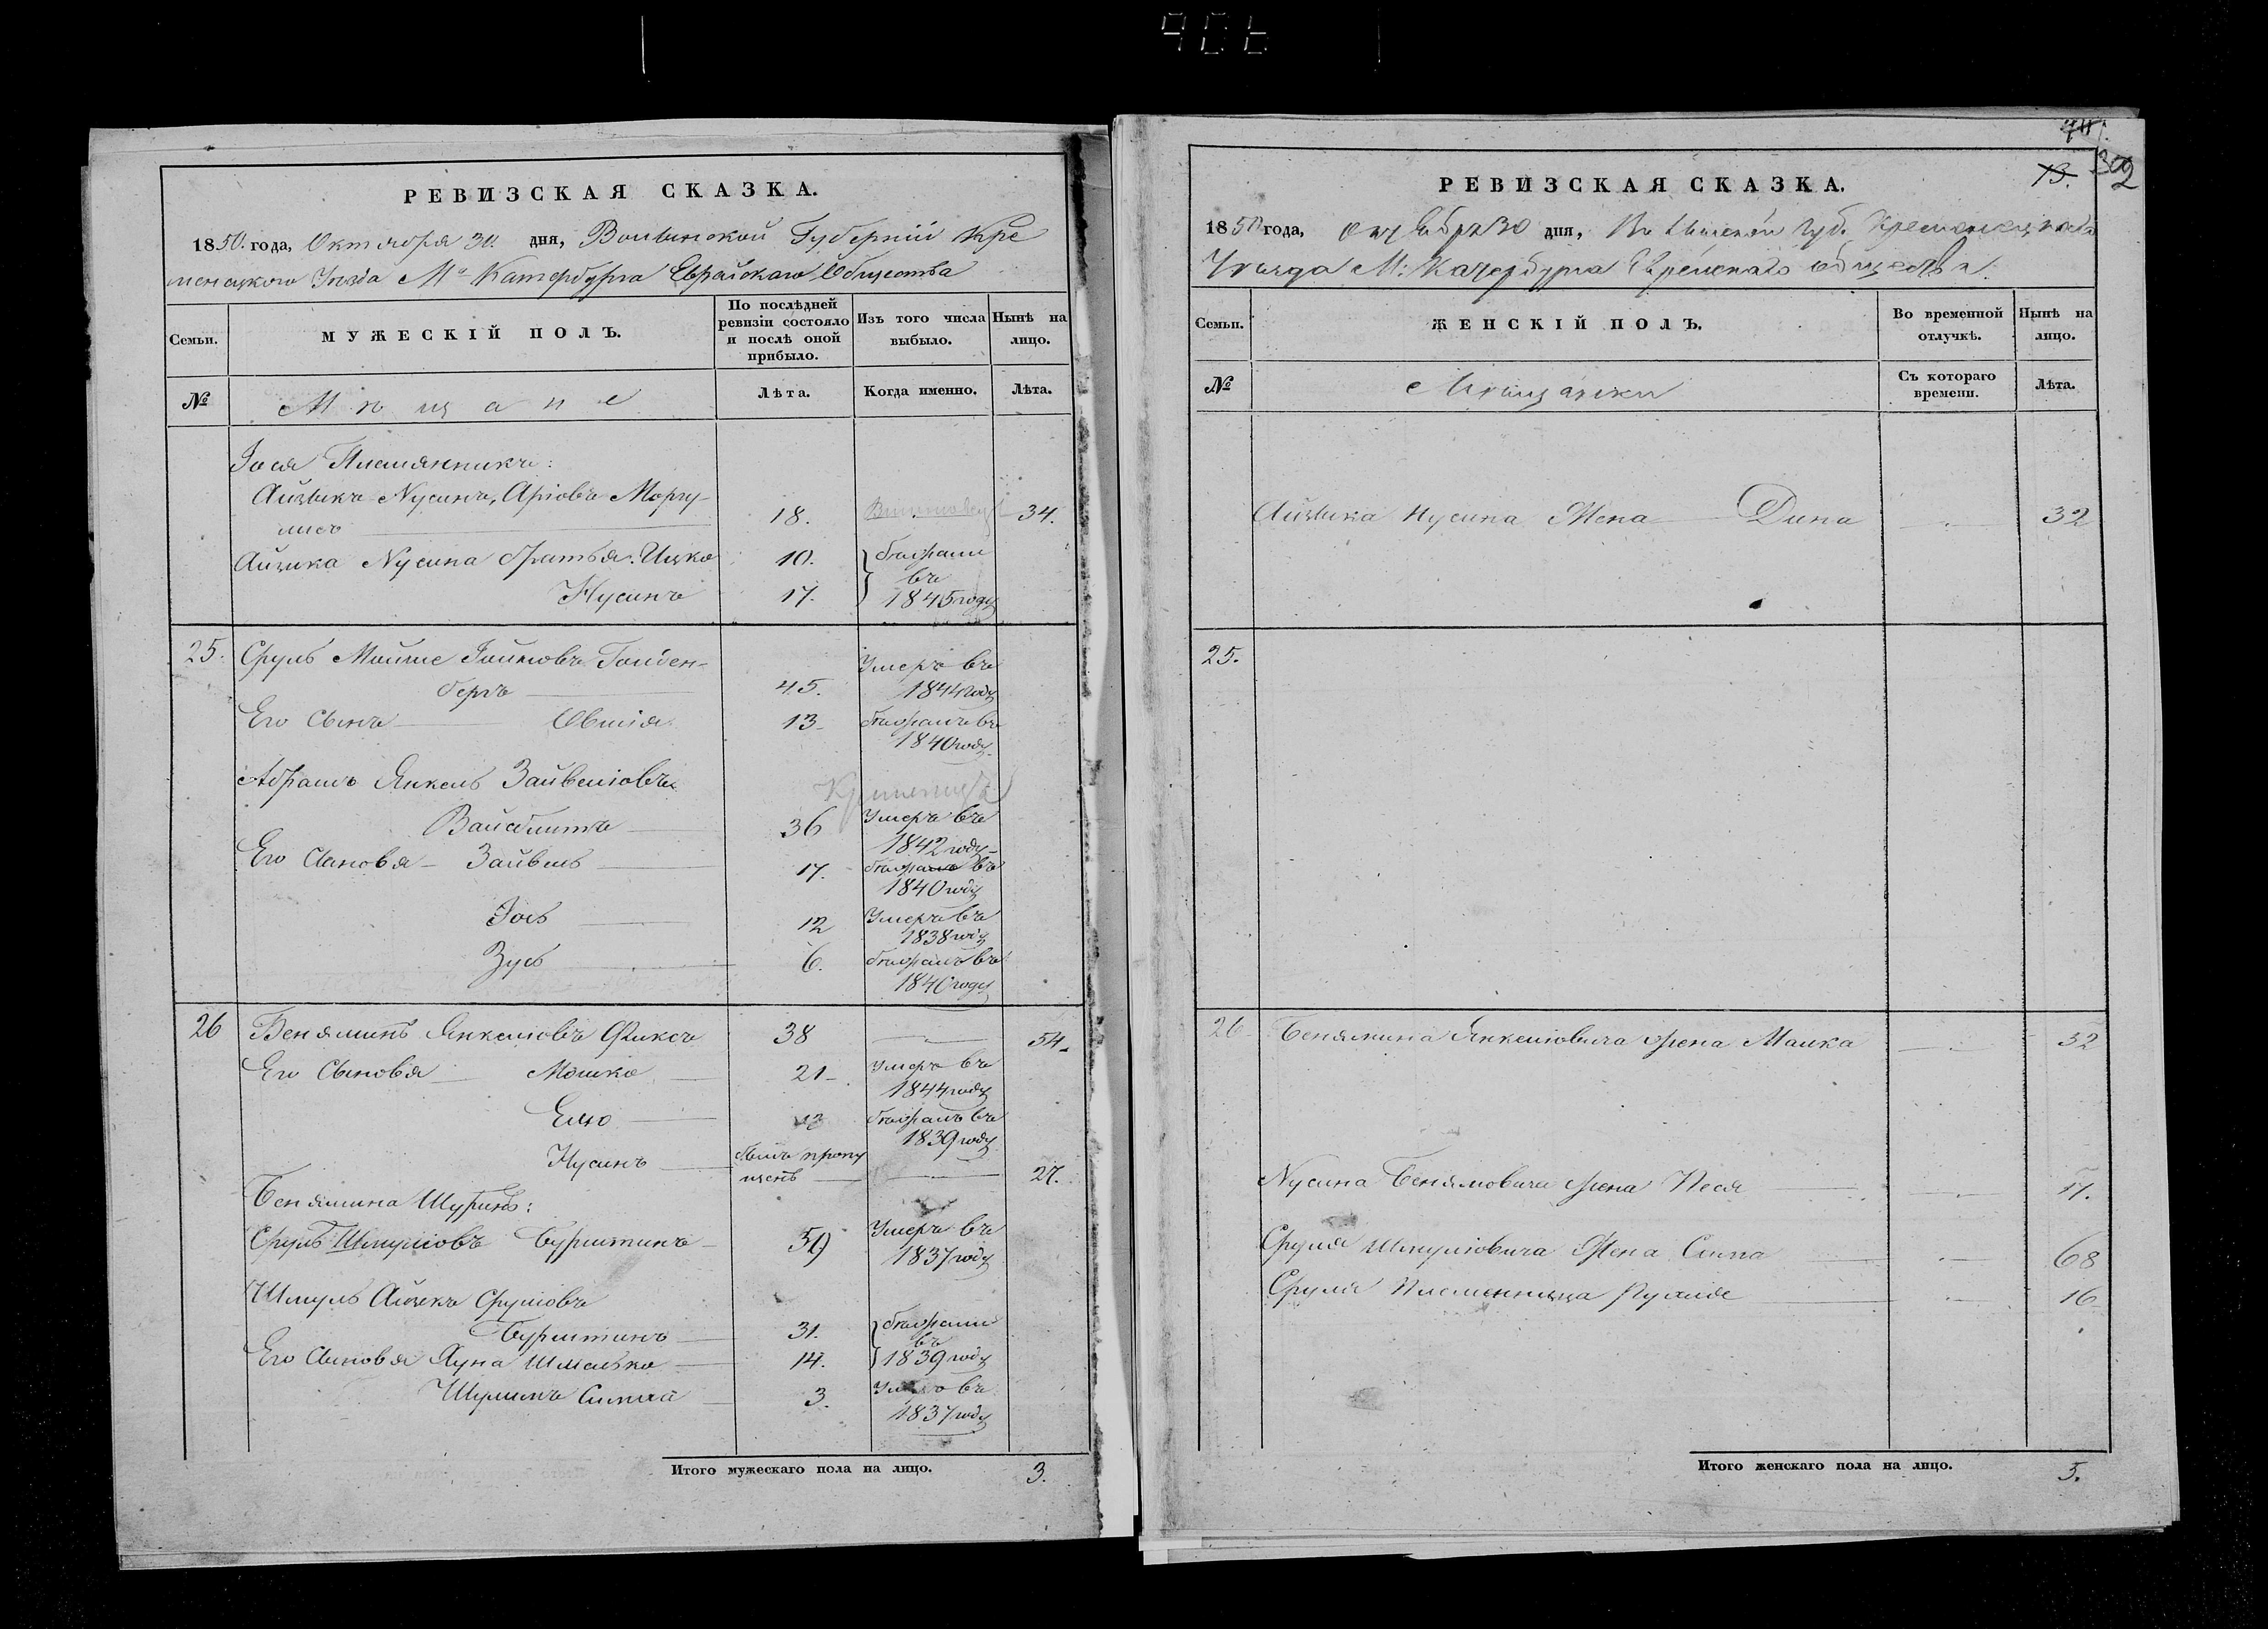 РЕВИЗСКАЯ СКАЗКА.
1850. года, Октября 30 дня, Волынской Губерніи Кре
менецкого Уѣзда Мо Катербурга Еврейскаго Общества
Семьи.
МУЖЕСКІЙ ПОЛЪ.
По послѣдней ревизіи состояло и послѣ оной прибыло.
Изъ того числа выбыло.
Нынѣ на лицо.
№
Мѣщане
Лѣта.
Когда именно.
Лѣта.
Племянники:
Айзикъ Нусинъ, Аріовъ Маргу-
лисъ 18. 34.
Айзика Нусина братья: Ицко 10. бѣжали
Нусинъ 17. въ 1845 году
25. Сруль Мойше Голден-
бергъ 45. Умеръ въ 1844 году
Его Сынъ Овшія 13 бѣжалъ въ 1840 году
Абрамъ Янкель Зайвеловъ
Кременец
Вайсблитъ 36 Умеръ въ 1842 году
Его Сыновья Зайвель 17. бѣжалъ въ 1840 году
Іось 12 Умеръ въ 1838 году
Зусь 6. бѣжалъ въ 1840 году
26 Беняминъ Янкеловъ Фиксъ 38 54.
Его Сыновья Мошко 21 Умеръ въ 1844 году
Елю 13 бѣжалъ въ 1839 году
Нусинъ былъ пропу
щенъ 27.
Бенямина Шуринъ:
Сруль Шмуловъ Бурштинъ 59 Умеръ въ 1837 году
Шмуль Айзикъ Сруловъ
Бурштинъ 31. бѣжали
Его Сыновья Хуна Шмелько 14. въ 1839 году
Шулимъ Симха 3. Умеръ въ 1837 году
Итого мужескаго пола на лицо. 3.
302
РЕВИЗСКАЯ СКАЗКА.
1850 года, Октября 30 дня, Волынской Губ. Кременецкаго
Уѣзда М: Катербурга Еврейскаго общества.
Семьи.
ЖЕНСКІЙ ПОЛЪ.
Во временной отлучкѣ.
Нынѣ на лицо.
№
Мѣщанки
Съ котораго времени.
Лѣта.
Айзика Нусина Жена Дина 32
25.
26 Бенямина Янкеловича жена Малка 32
Нусина Бенямовича жена Песя 17.
Сруля Шмуловича Жена Сима 68
Сруля племенница 16
Итого женскаго пола на лицо. 5.